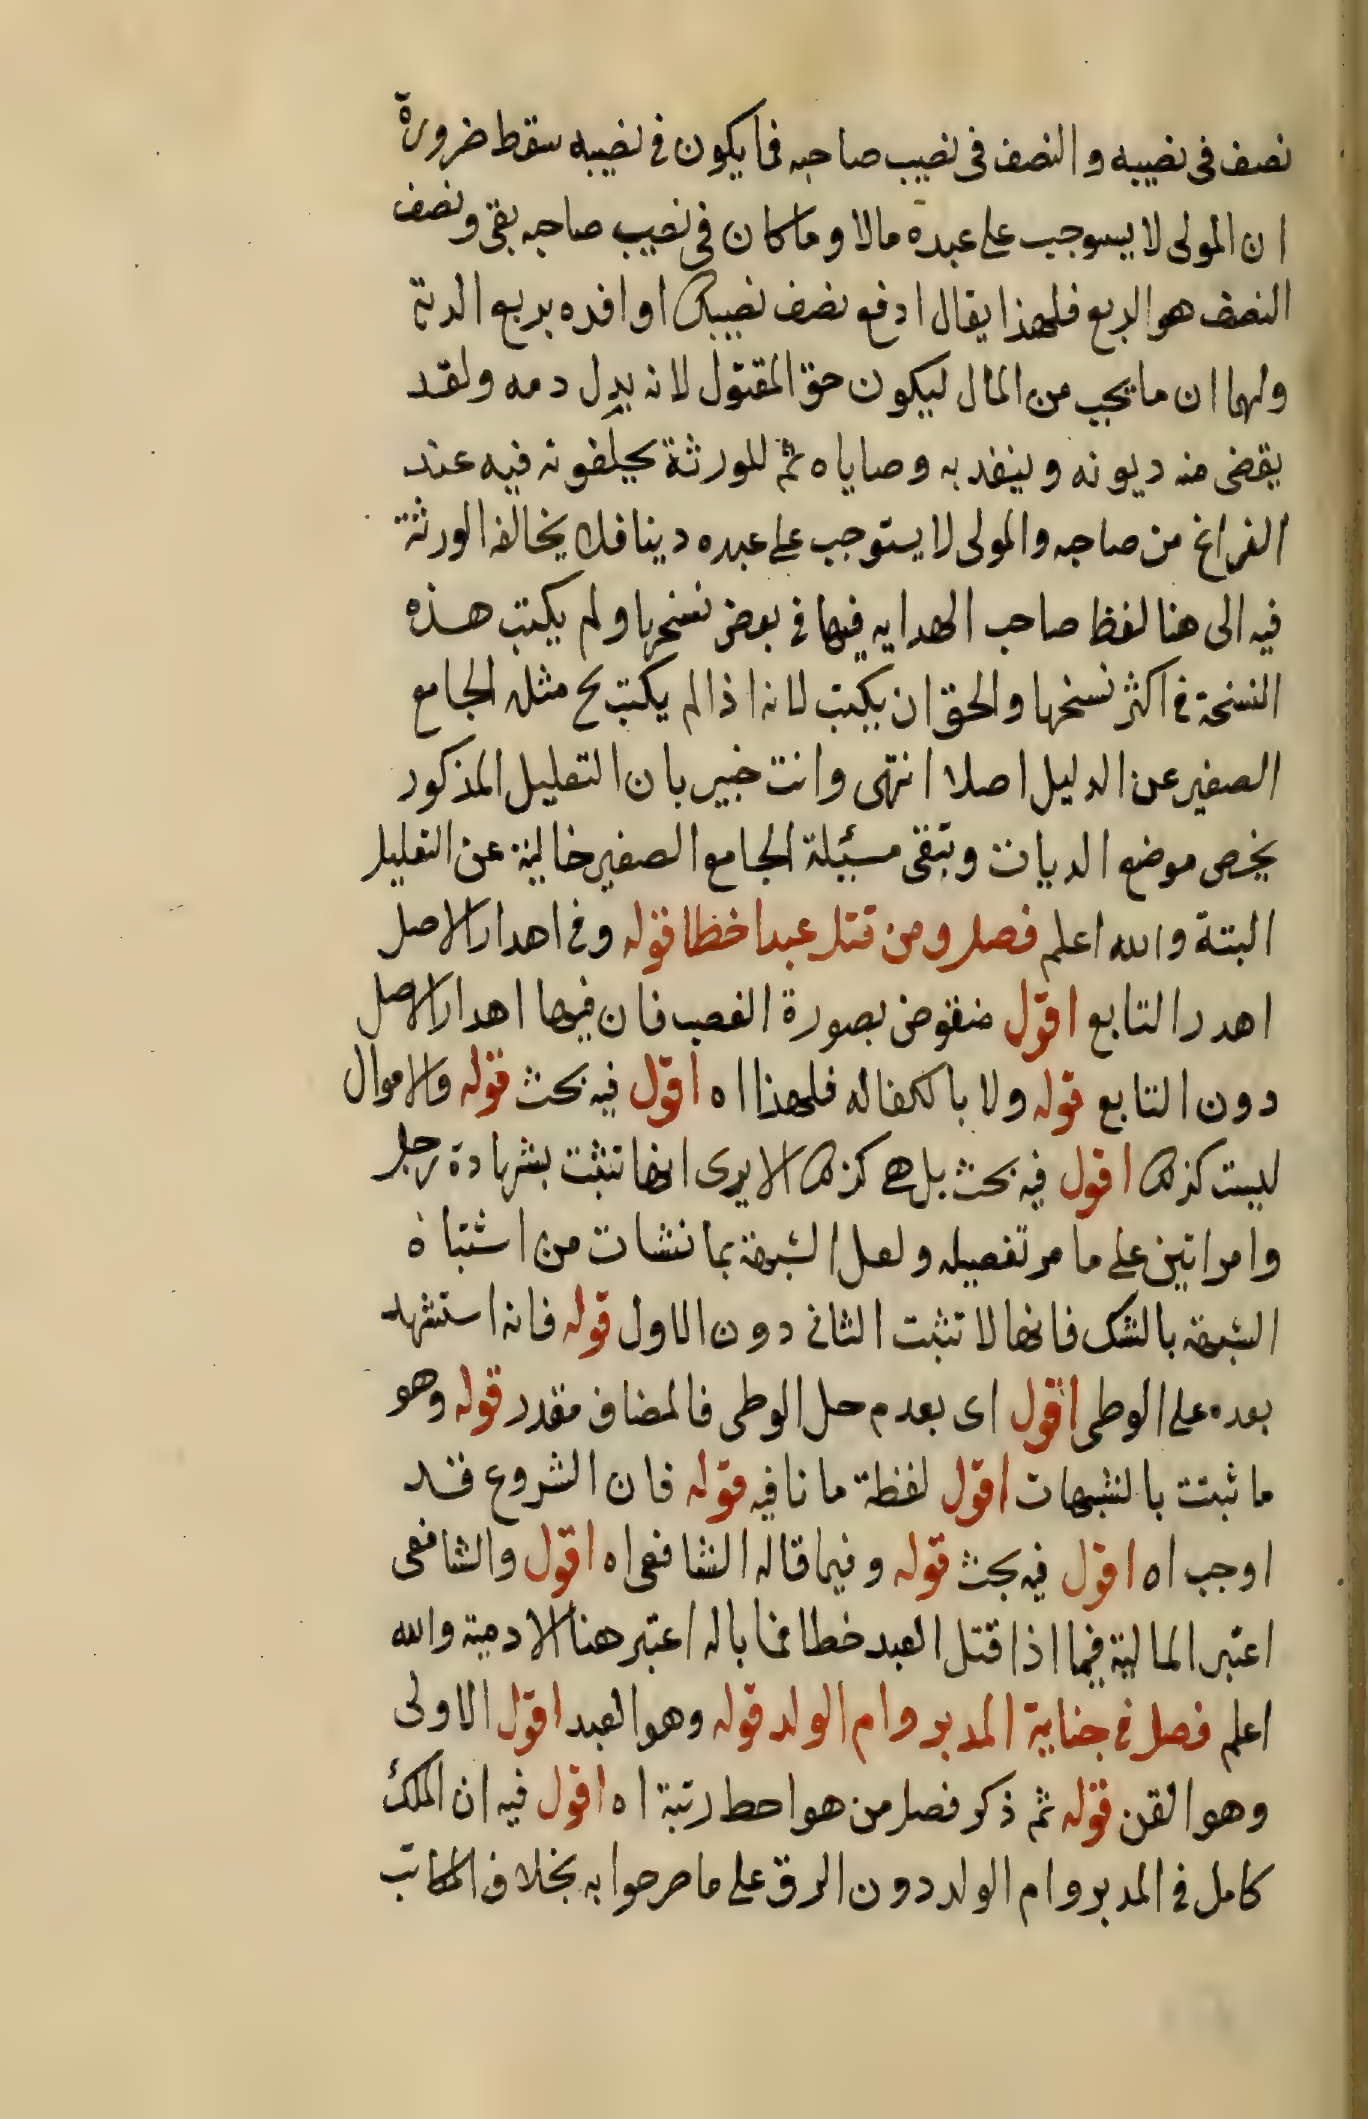 نصف فى نصيبه و النصف فى نصيب صاحبه فما يكون فى نصيبه سقط ضرورة
ان المولى لا يستوجب على عبده مالا وما كان فى نصيب صاحبه بقى ونصف
النصف هو الربع فلهذا يقال ادفع نصف نصيبك او افده بربع الدية
ولهما ان ما يجب من المال ليكون حق المقتول لانه بدل دمه ولقد
يقضى منه ديونه وينفذ به وصاياه ثم للورثة يخلفونه فيه عند
الفراغ من صاحبه والمولى لا يستوجب على عبده دينا فلا يخالفه الورثة
فيه الى هنا لفظ صاحب الهدايه فيها فى بعض نسخها ولم يكتب هذه
النسخة فى اكثر نسخها والحق ان يكتب لانه اذا لم يكتب يخ مثله الجامع
الصغير عن الدليل اصلا انتهى وانت خبير بان التعليل المذكور
يخص موضع الديات وتبقى مسئلة الجامع الصغير خالية عن التعليل
البتة والله اعلم فصل ومن قتل عبدا خطا قوله وفى اهدار الاصل
اهدر التابع اقول منقوض بصورة الغصب فان فيها اهدار الاصل
دون التابع قوله ولا بالكفاله فلهذا اه اقول فيه بحث قوله والاموال
ليست كذلك اقول فيه بحث بل هى كذلك الا يرى انها تثبت بشهادة رجل
وامراتين على ما مر تفصيله ولعل الشبهة بما نشات من اشتباه
الشبهة بالشك فانها لا تثبت الثانى دون الاول قوله فانه استشهد
بعده على الوطى اقول اى بعدم حل الوطى فالمضاف مقدر قوله وهو
ما ثبتت بالشبهات اقول لفظة ما نافيه قوله فان الشروع قد
اوجب اه اقول فيه بحث قوله وفيما قاله الشافعى اه اقول والشافعى
اعتبر المالية فيما اذا قتل العبد خطا فما باله اعتبر هنا الادمية والله
اعلم فصل فى جناية المدبر وام الولد قوله وهو العبد اقول الاولى
وهو القن قوله ثم ذكر فصل من هو احط رتبة اه اقول فيه ان الملك
كامل فى المدبر وام الولد دون الرق على ما صرحوا به بخلاف المكاتب